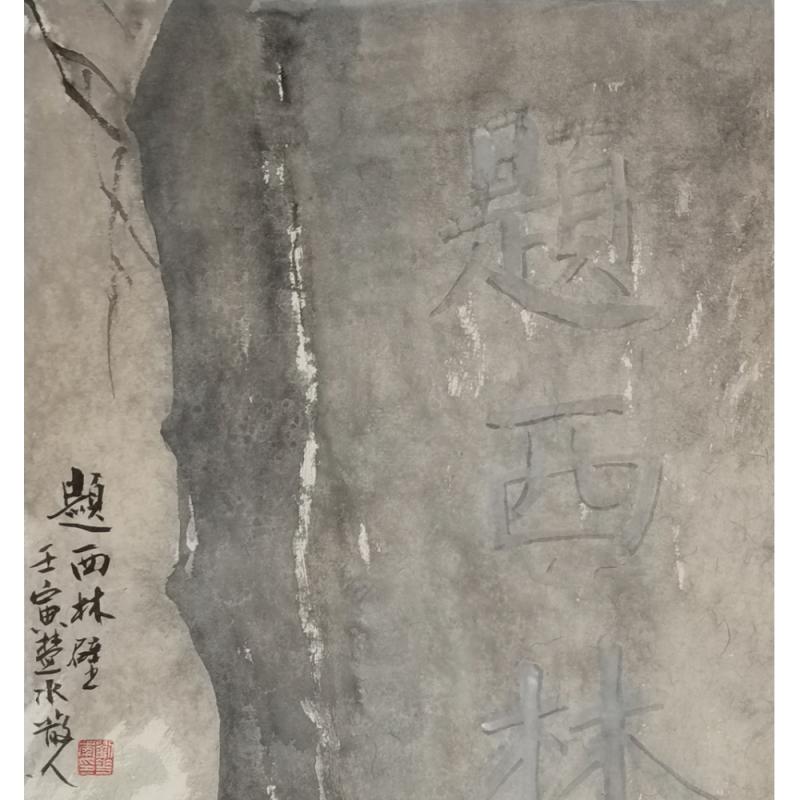 題西林
題西林壁
壬寅楚水散人